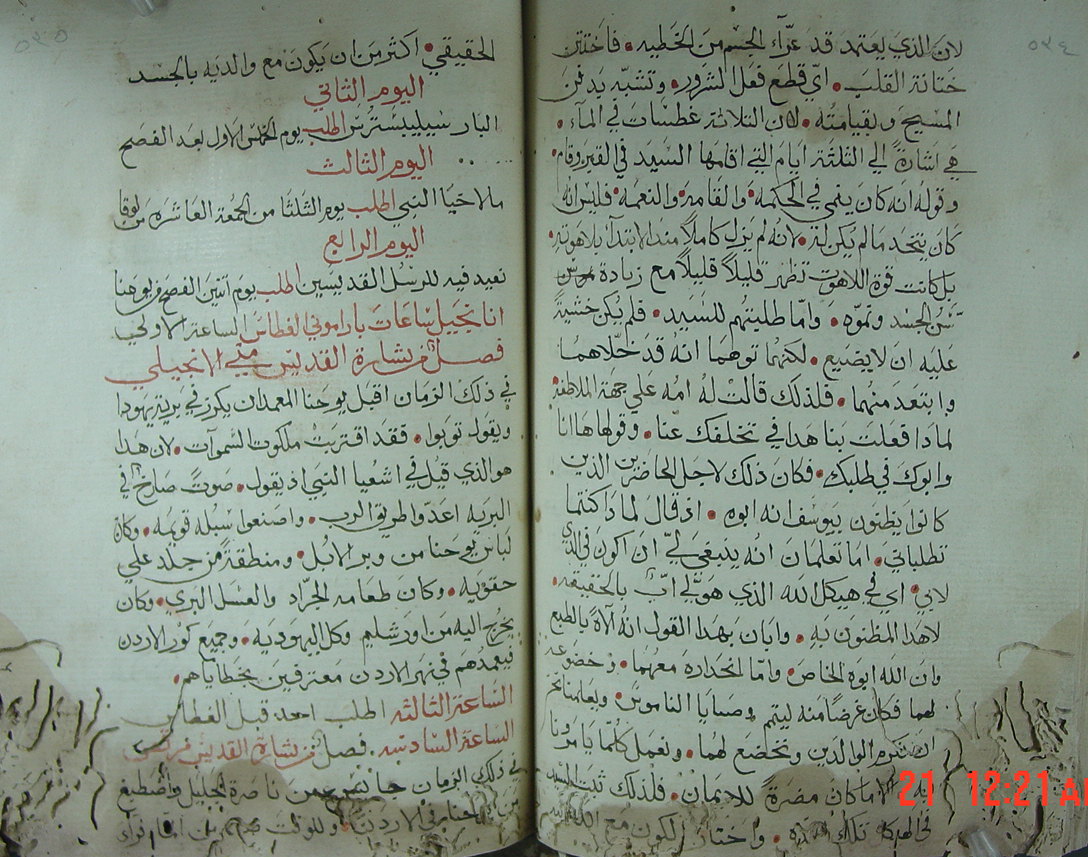 ٥٣٤
لان الذي يعتمد قد عرّاء الجسم من الخطيه • فاختتن
ختانة القلب • اي قطع فعل الشرور • وتشبّه بدفن
المسيح وبقيامته • لان الثلاثة غطسات في المآء •
هي اشارة الي الثلثة ايام التي اقامها السيد في القبر وقام •
وقوله انه كان ينمي في الحكمه • والقامه • والنعمه • فليس انه
كان يتخد ما لم يكن له • لانه لم يزل كاملاً مند الابتدآء بلاهوته •
بل كانت قوة اللاهوت تظهر قليلاً قليلاً مع زيادة
سن الجسد ونموّه • وامّا طلبتهم للسّيد • فلم يكن خشيةً
عليه ان لا يضيع • لكنهما توهما انه قد خلّاهما
وابتعد منهما • فلذلك قالت له امه علي جهة الملاطفه
لمادا فعلت بنا هدا في تخلفك عنا • وقولها ها انا
وابوك في طلبك • فكان ذلك لاجل الحاضرين الذين
كانوا يظنون بيوسف انه ابوه • اذ قال لمادا كنتما
تطلباني • اما تعلمان انه ينبغي لي ان اكون في الذي
لابي • اي في هيكل الله الذي هو لي ابٌ بالحقيقه •
لا هدا المظنون به • وابان بهدا القول انه الاهٌ بالطبع
وان الله ابوه الخاص • وامّا انحداره معهما • وخضوعه
لهما فكان غرضاً منه ليتم وصايا الناموس • ويعلمنا نحن
ان نكرم الوالدين ونخضع لهما • ونعمل كلما يامرونا
به الا ما كان مضرة للايمان • فلذلك ثبت المسيح
في الهيكل تلك • واختار الكون مع الله ابيه
٥٣٥
الحقيقي • اكثر من ان يكون مع والديه بالجسد
اليوم الثاني
البار سيليبسترس اطلب يوم الخميس الاول بعد الفصح
اليوم الثالث
ملاخيا النبي اطلب يوم الثلثا من الجمعة العاشره من لوقا
اليوم الرابع
نعيد فيه للرسل القديسين اطلب يوم اثنين الفصح من يوحنا
اناجيل ساعات باراموني الغطاس الساعة الاولي
فصل من بشارة القديس متي الانجيلي
في ذلك الزمان اقبل يوحنا المعمدان يكرز في برية يهودا
ويقول توبوا • فقد اقتربت ملكوت السموات • لان هدا
هو الذي قيل في اشعيا النبي اذ يقول • صوتُ صارخ في
البريه اعدّوا طريق الرب • واصنعوا سبله قويمه • وكان
لباس يوحنا من وبر الابل • ومنطقة من جلد علي
حقويه • وكان طعامه الجراد والعسل البري • وكان
يخرج اليه من اورشليم وكل اليهوديه • وجميع كور الاردن
فيعمدهم في نهر الاردن معترفين بخطاياهم •
الساعة الثالثه اطلب احد قبل الغطاس
الساعة السادسه • فصل من بشارة القديس مرقس
في ذلك الزمان جا يسوع من ناصرة الجليل واصطبغ
من يوحنا في الاردن • وللوقت
21 12:21 AM